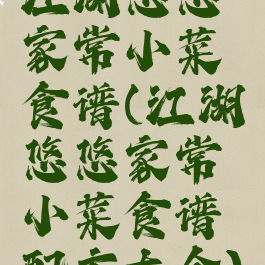 江湖恩恩
家常小菜
食谱(江湖
恩恩家常
小菜食谱